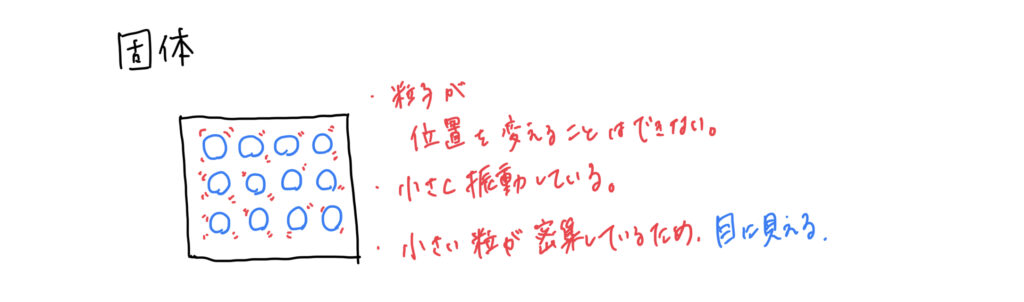 固体
・粒子が
位置を変えることはできない。
・小さく振動している。
・小さい粒が密集しているため、目に見える。